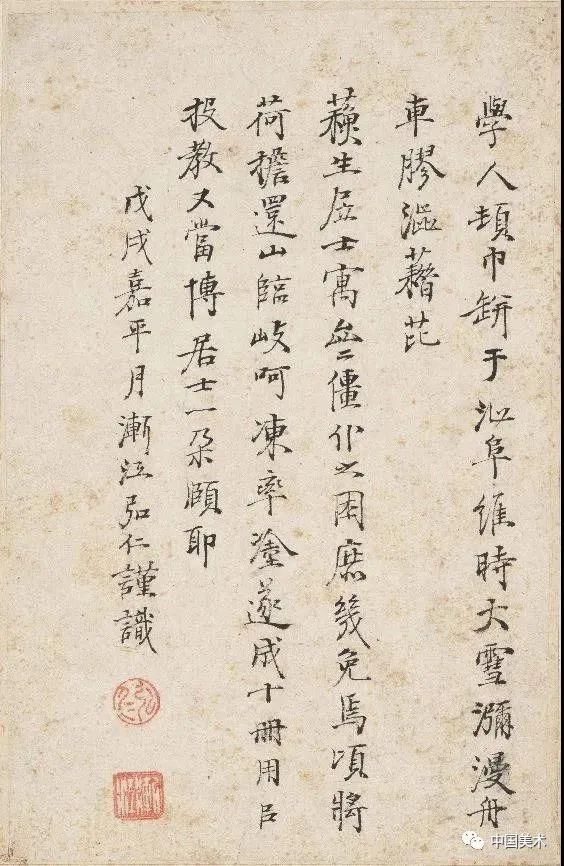 學人頓巾缾于沁阜維時大雪瀰漫舟
車膠澁藉芘
蘋生居士寓此二僵仆之困庶幾免焉頃將
荷擔還山臨岐呵凍率塗遂成十冊用㠯
投教又當博居士一朵頤耶
戊戌嘉平月漸江弘仁謹識
中国美术